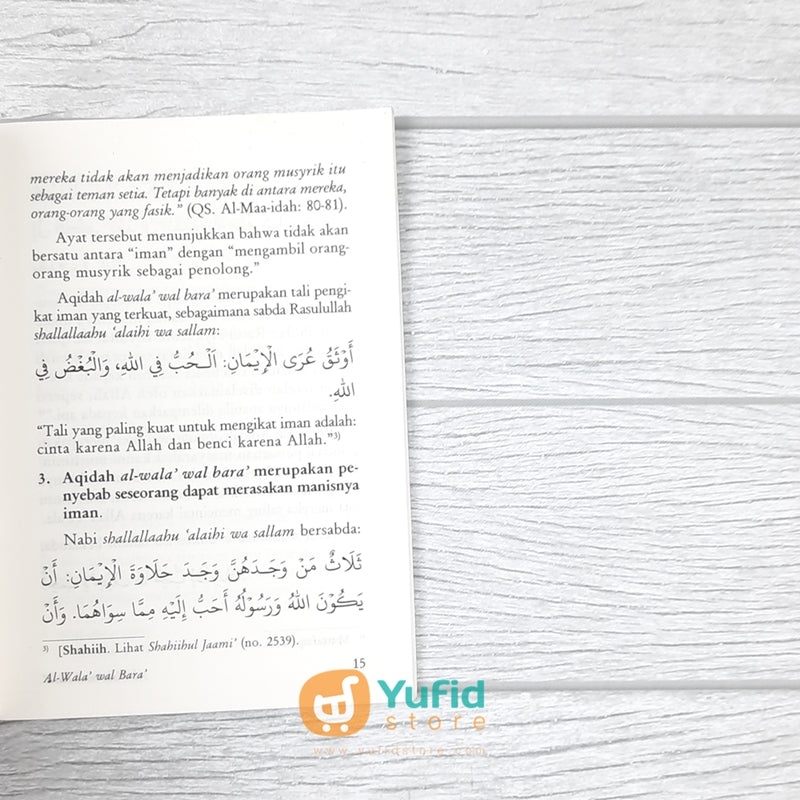 mereka tidak akan menjadikan orang musyrik itu
sebagai teman setia. Tetapi banyak di antara mereka,
orang-orang yang fasik.” (QS. Al-Maa-idah: 80-81).
Ayat tersebut menunjukkan bahwa tidak akan
bersatu antara “iman” dengan “mengambil orang-
orang musyrik sebagai penolong.”
Aqidah al-wala’ wal bara’ merupakan tali pengi-
kat iman yang terkuat, sebagaimana sabda Rasulullah
shallallaahu ‘alaihi wa sallam:
أَوْثَقُ عُرَى الْإِيْمَانِ: اَلْـحُبُّ فِي اللهِ، وَالْبُغْضُ فِي
اللهِ.
“Tali yang paling kuat untuk mengikat iman adalah:
cinta karena Allah dan benci karena Allah.”3)
3. Aqidah al-wala’ wal bara’ merupakan pe-
nyebab seseorang dapat merasakan manisnya
iman.
Nabi shallallaahu ‘alaihi wa sallam bersabda:
ثَلَاثٌ مَنْ وَجَدَهُنَّ وَجَدَ حَلَاوَةَ الْإِيْمَانِ: أَنْ
يَكُوْنَ اللهُ وَرَسُوْلُهُ أَحَبُّ إِلَيْهِ مِمَّا سِوَاهُمَا. وَأَنْ
3) [Shahiih. Lihat Shahiihul Jaami’ (no. 2539).
Al-Wala’ wal Bara’
15
Yufid
store
www.yufidstore.com